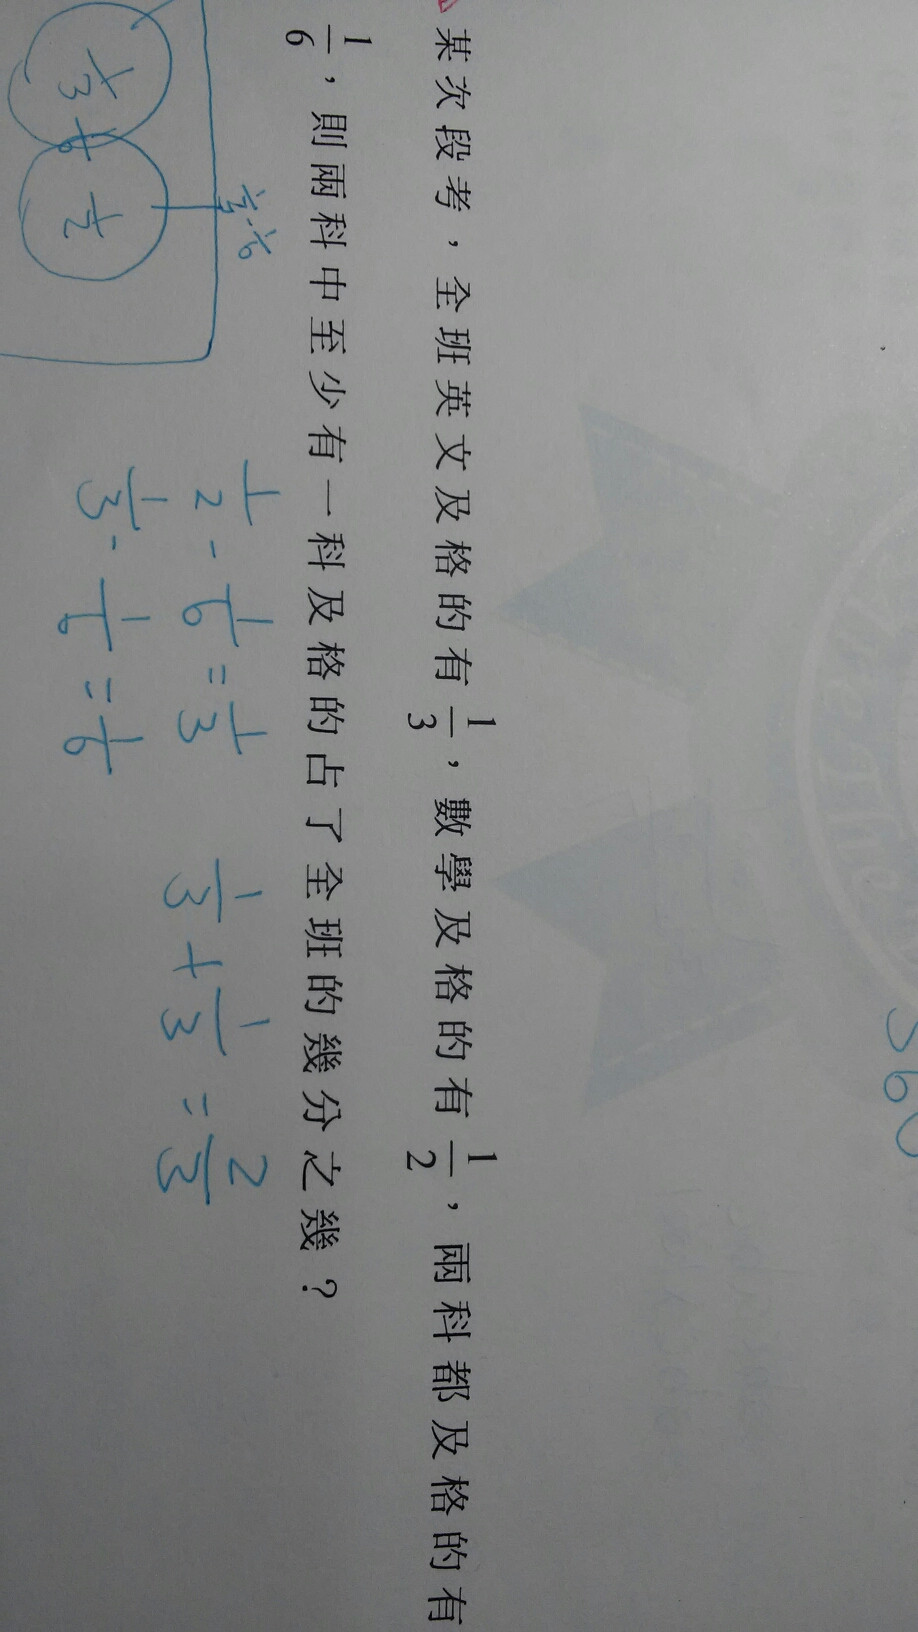 某次段考，全班英文及格的有1/3，數學及格的有1/2，兩科都及格的有
1/6，則兩科中至少有一科及格的占了全班的幾分之幾？
1/2 - 1/6
1/3 1/6 1/2
1/2 - 1/6 = 1/3
1/3 - 1/6 = 1/6
1/3 + 1/3 = 2/3
360